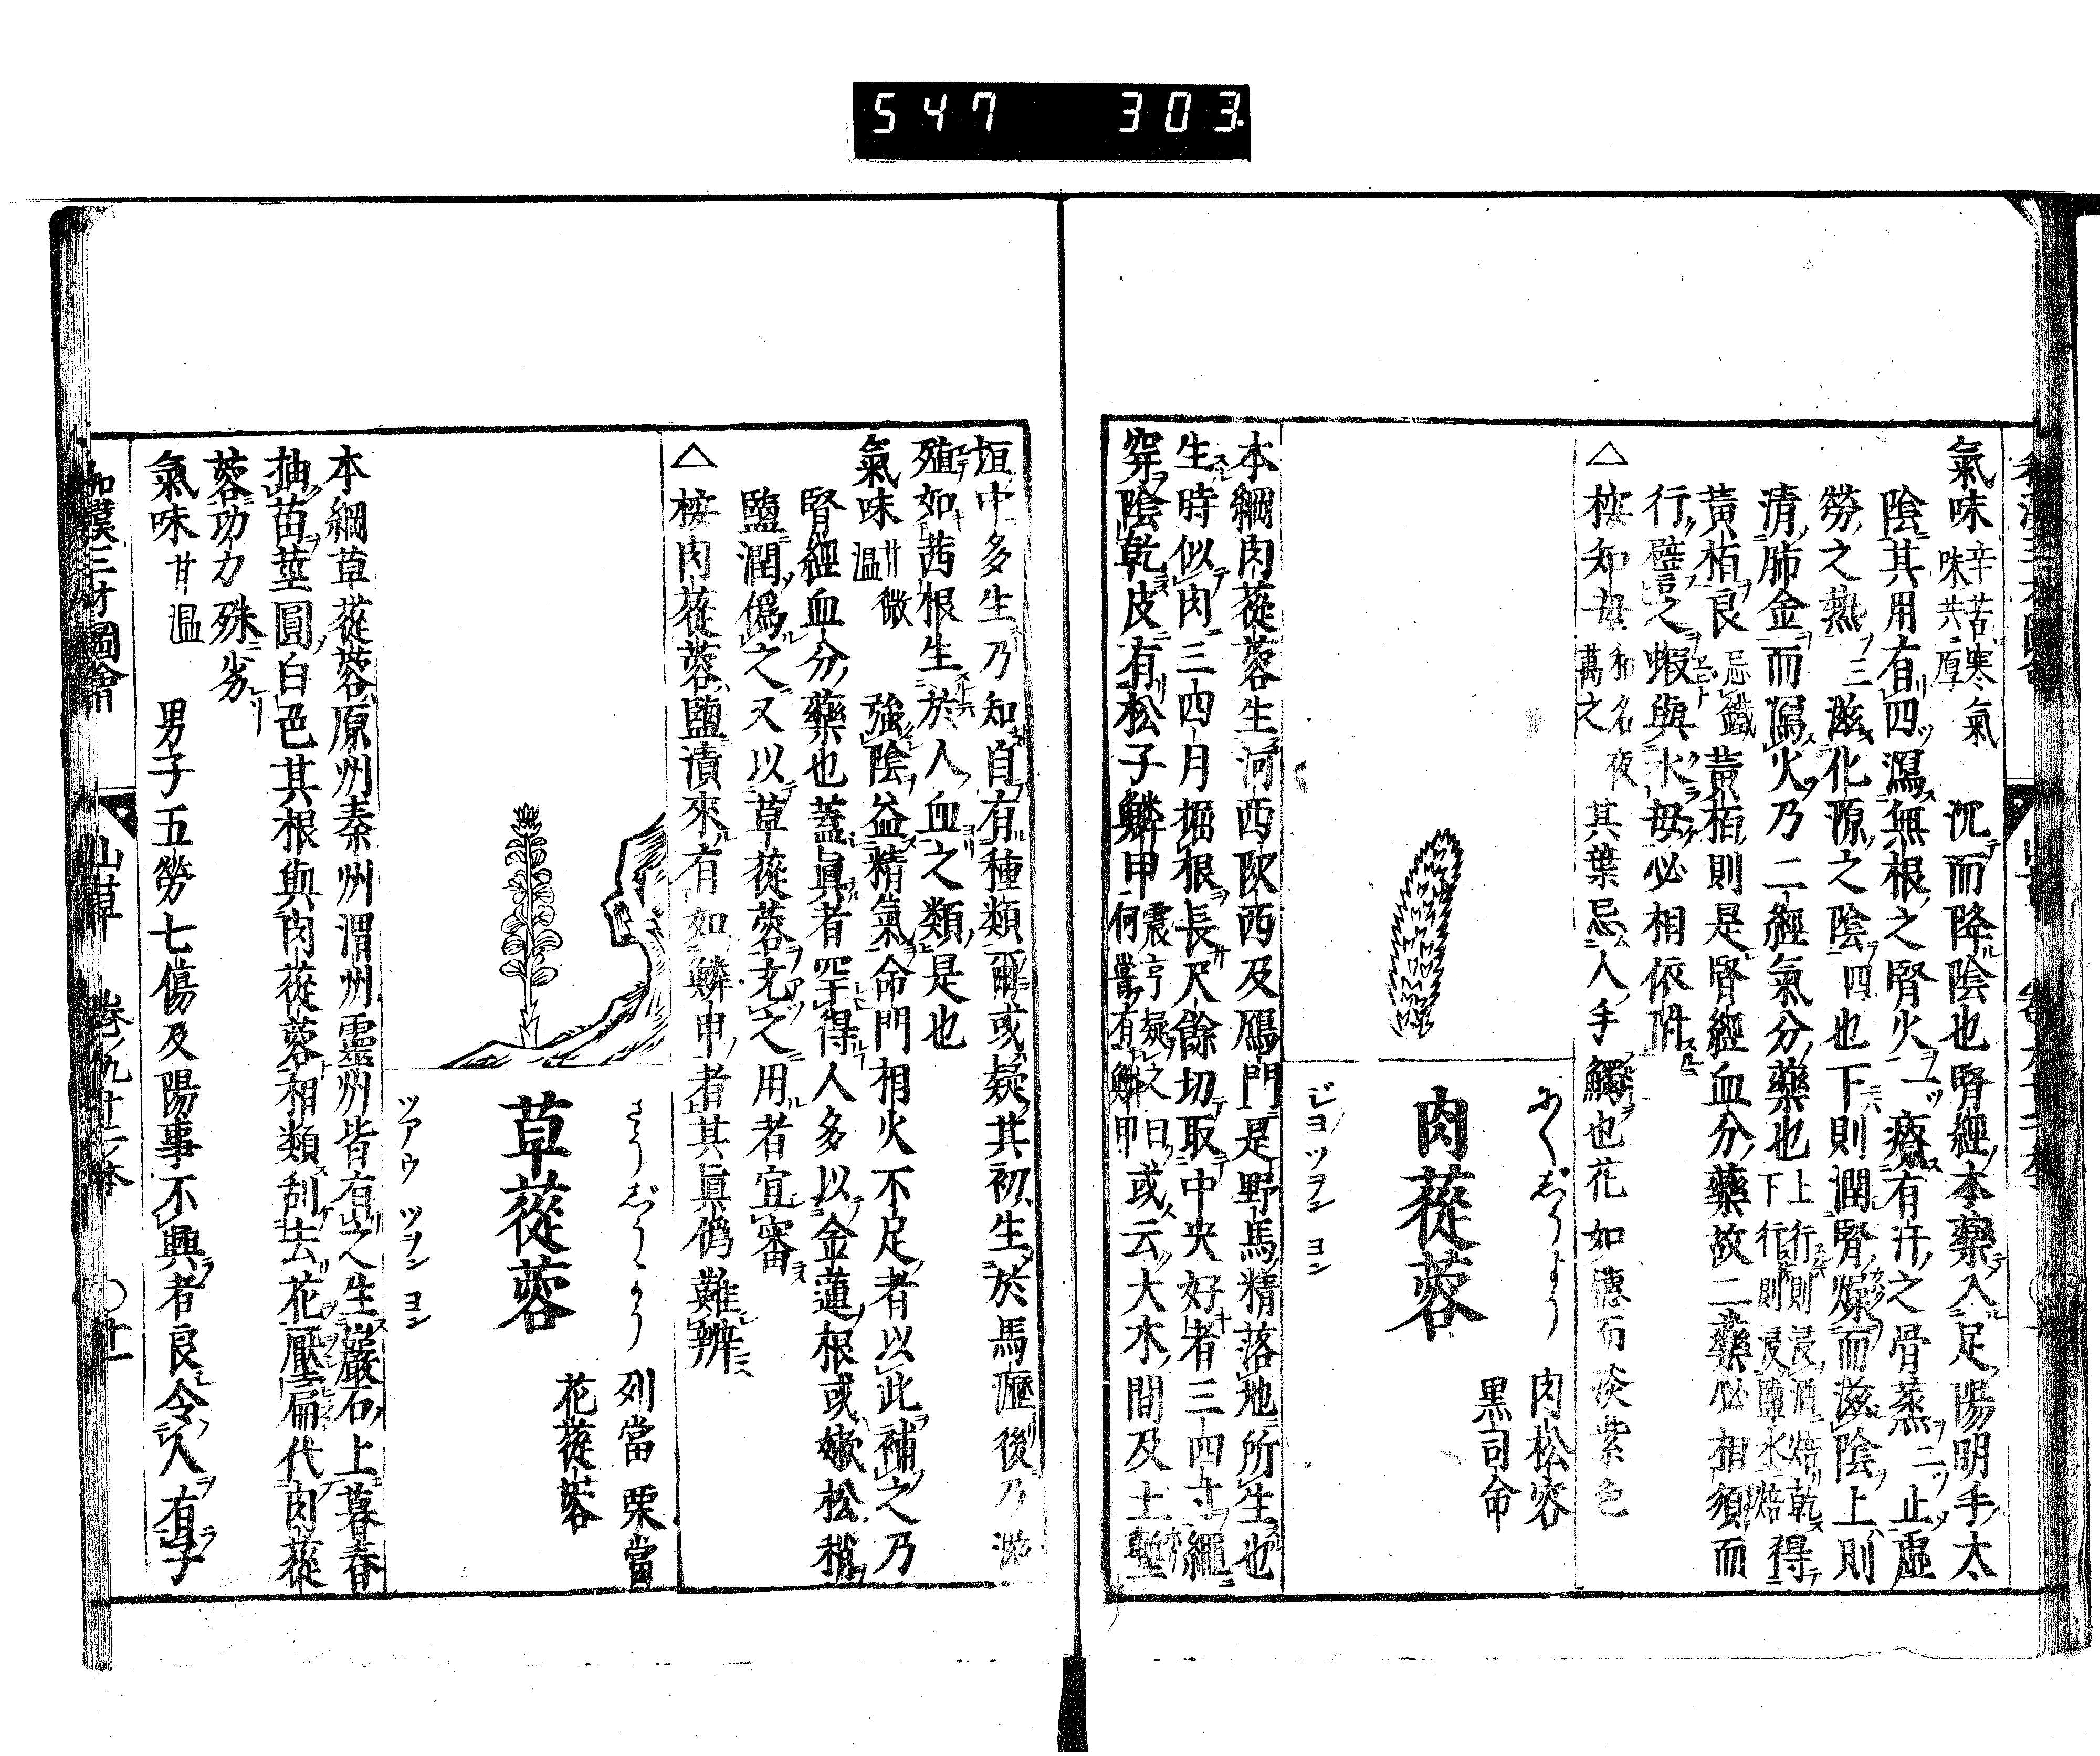 547 303
氣味 辛苦寒氣味共厚 沉而降陰也腎經本藥入足陽明手太
陰其用有四瀉無根之腎火一療有汗之骨蒸二止虛
勞之熱三滋化源之陰四也下則潤腎燥而滋陰上則
清肺金而瀉火乃二經氣分藥也 上行則浸酒焙乾下行則浸鹽水焙 得
黃栢良 忌鐵 黃栢則是腎經血分藥故二藥必相須而
行譬之蝦與水母必相依附
△桉知母 和名夜萬之 其葉忌人手觸也花如德而淡紫色
肉蓯蓉
にくじうよう
肉松容
黒司命
ジヨツヲン ヨン
本綱肉蓯蓉生河西陜西及鴈門是野馬精落地所生也
生時似肉三四月掘根長尺餘切取中央好者三四寸繩
穿陰乾皮有松子鱗甲 震亨疑之曰何嘗有鱗甲 或云大木間及土塹
垣中多生乃知自有種類爾或疑其初生於馬瀝後乃滋
殖如茜根生於人血之類是也
氣味 甘微溫 強陰益精氣命門相火不足者以此補之乃
腎經血分藥也蓋眞者罕得人多以金蓮根或嫰松稍
鹽潤僞之又以草蓯蓉充之用者宜審
△桉肉蓯蓉鹽漬來有如鱗甲者其眞僞難辨
草蓯蓉
さうじうよう
列當 栗當
花蓯蓉
ツアウ ツヲン ヨン
本綱草蓯蓉原州秦州渭州靈州皆有之生巖石上暮春
抽苗莖圓白色其根與肉蓯蓉相類刮去花壓扁代肉蓯
蓉功力殊劣
氣味 甘溫 男子五勞七傷及陽事不興者良令人有子
和漢三才圖會 山草 卷ノ九十二本 ○廿一